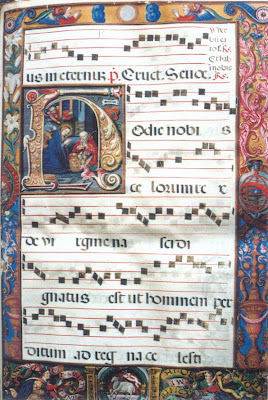 us in eternus. Eruct.
H odie nobi s
ce lorum re x
de vi rgine na sci di
gnatus est ut hominem per
ditum ad reg na ce lesti